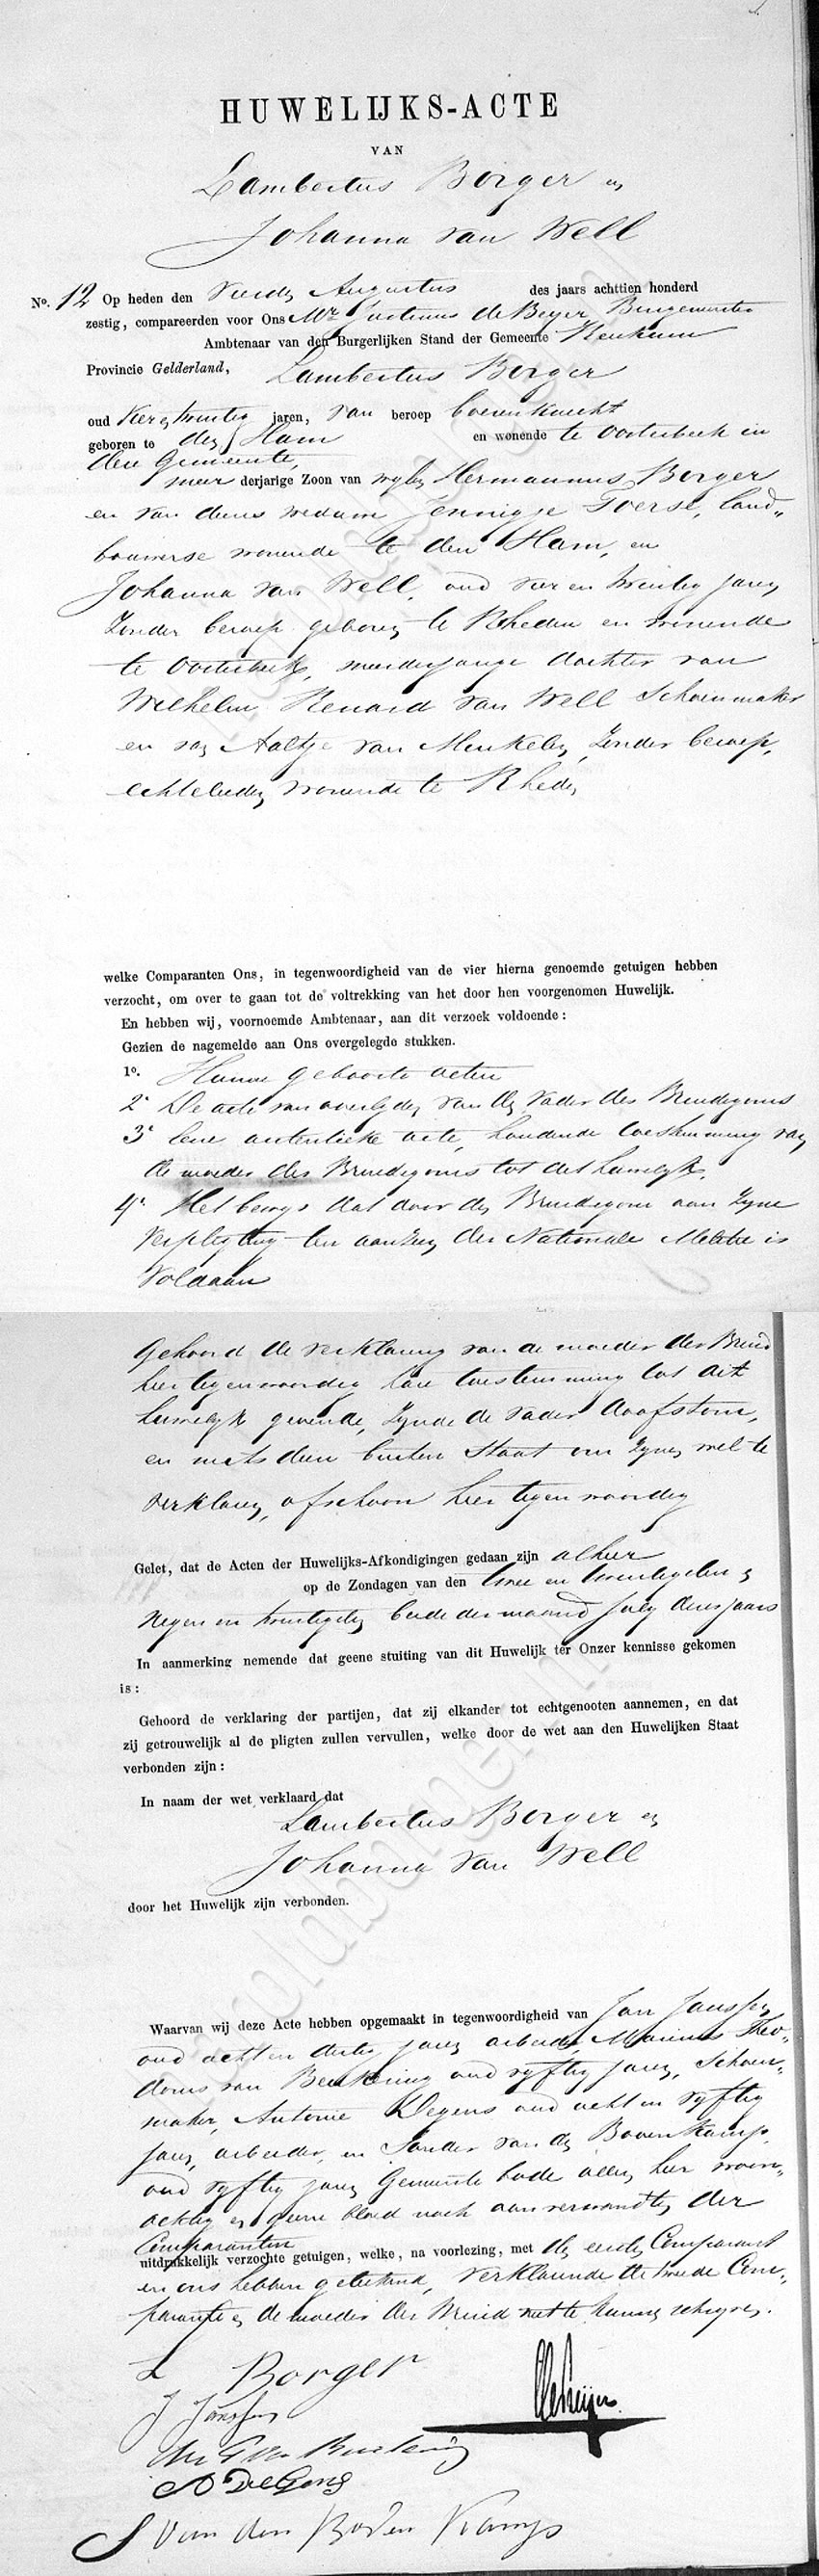 HUWELIJKS-ACTE
VAN
Lambertus Borger en
Johanna van Well
No. 12 Op heden den vierden Augustus des jaars achttien honderd
zestig, compareerden voor Ons Mr. Justinus de Beyer Burgemeester
Ambtenaar van den Burgerlijken Stand der Gemeente Renkum
Provincie Gelderland, Lambertus Borger
oud vier en twintig jaren, van beroep boerenknecht
geboren te den Ham en wonende te Oosterbeek in
deze Gemeente,
meerderjarige Zoon van wylen Hermannus Borger
en van diens weduwe Jennigje land-
bouwerse wonende te den Ham, en
Johanna van Well, oud vier en twintig jaren
zonder beroep geboren te Rheden en wonende
te Oosterbeek, meerderjarige dochter van
Wilhelm Renard van Well Schoenmaker
en van Aaltje van Meukelen, zonder beroep,
echtelieden wonende te Rheden
welke Comparanten Ons, in tegenwoordigheid van de vier hierna genoemde getuigen hebben
verzocht, om over te gaan tot de voltrekking van het door hen voorgenomen Huwelijk.
En hebben wij, voornoemde Ambtenaar, aan dit verzoek voldoende:
Gezien de nagemelde aan Ons overgelegde stukken.
1o. Hunne geboorte acten
2e De acte van overlyden van den vader des Bruidegoms
3e Eene autentieke acte, houdende toestemming van
de moeder des Bruidegoms tot dit huwelyk.
4e Het bewys dat door den Bruidegom aan zyne
verpligting ten aanzien der Nationale Militie is
voldaan
Gehoord de verklaring van de moeder der Bruid
hier tegenwoordig hare toestemming tot dit
huwelyk gevende, zynde de vader doofstom,
en mits dien buiten staat om zynen wil te
verklaren, ofschoon hier tegenwoordig
Gelet, dat de Acten der Huwelijks-Afkondigingen gedaan zijn alhier
op de Zondagen van den twee en twintigsten en
negen en twintigsten beide der maand July dezes jaars
In aanmerking nemende dat geene stuiting van dit Huwelijk ter Onzer kennisse gekomen
is:
Gehoord de verklaring der partijen, dat zij elkander tot echtgenooten aannemen, en dat
zij getrouwelijk al de pligten zullen vervullen, welke door de wet aan den Huwelijken Staat
verbonden zijn:
In naam der wet verklaard dat
Lambertus Borger en
Johanna van Well
door het Huwelijk zijn verbonden.
Waarvan wij deze Acte hebben opgemaakt in tegenwoordigheid van Jan Janssen
oud acht en dertig jaren arbeider, Marinus Theo-
dorus van Beukering oud vyftig jaren, Schoen-
maker, Antonie Degens oud acht en vyftig
jaren, arbeider, en Sander van den Bovenkamp,
oud vyftig jaren Gemeente bode allen hier woon-
achtig en geene bloed noch aanverwandten der
Comparanten
uitdrukkelijk verzochte getuigen, welke, na voorlezing, met den eersten Comparant
en ons hebben geteekend, verklarende de tweede Com-
parante en de moeder der Bruid niet te kunnen schryven.
L Borger
de Beijer
J Janssen
A Degens
S van den Boven Kamp